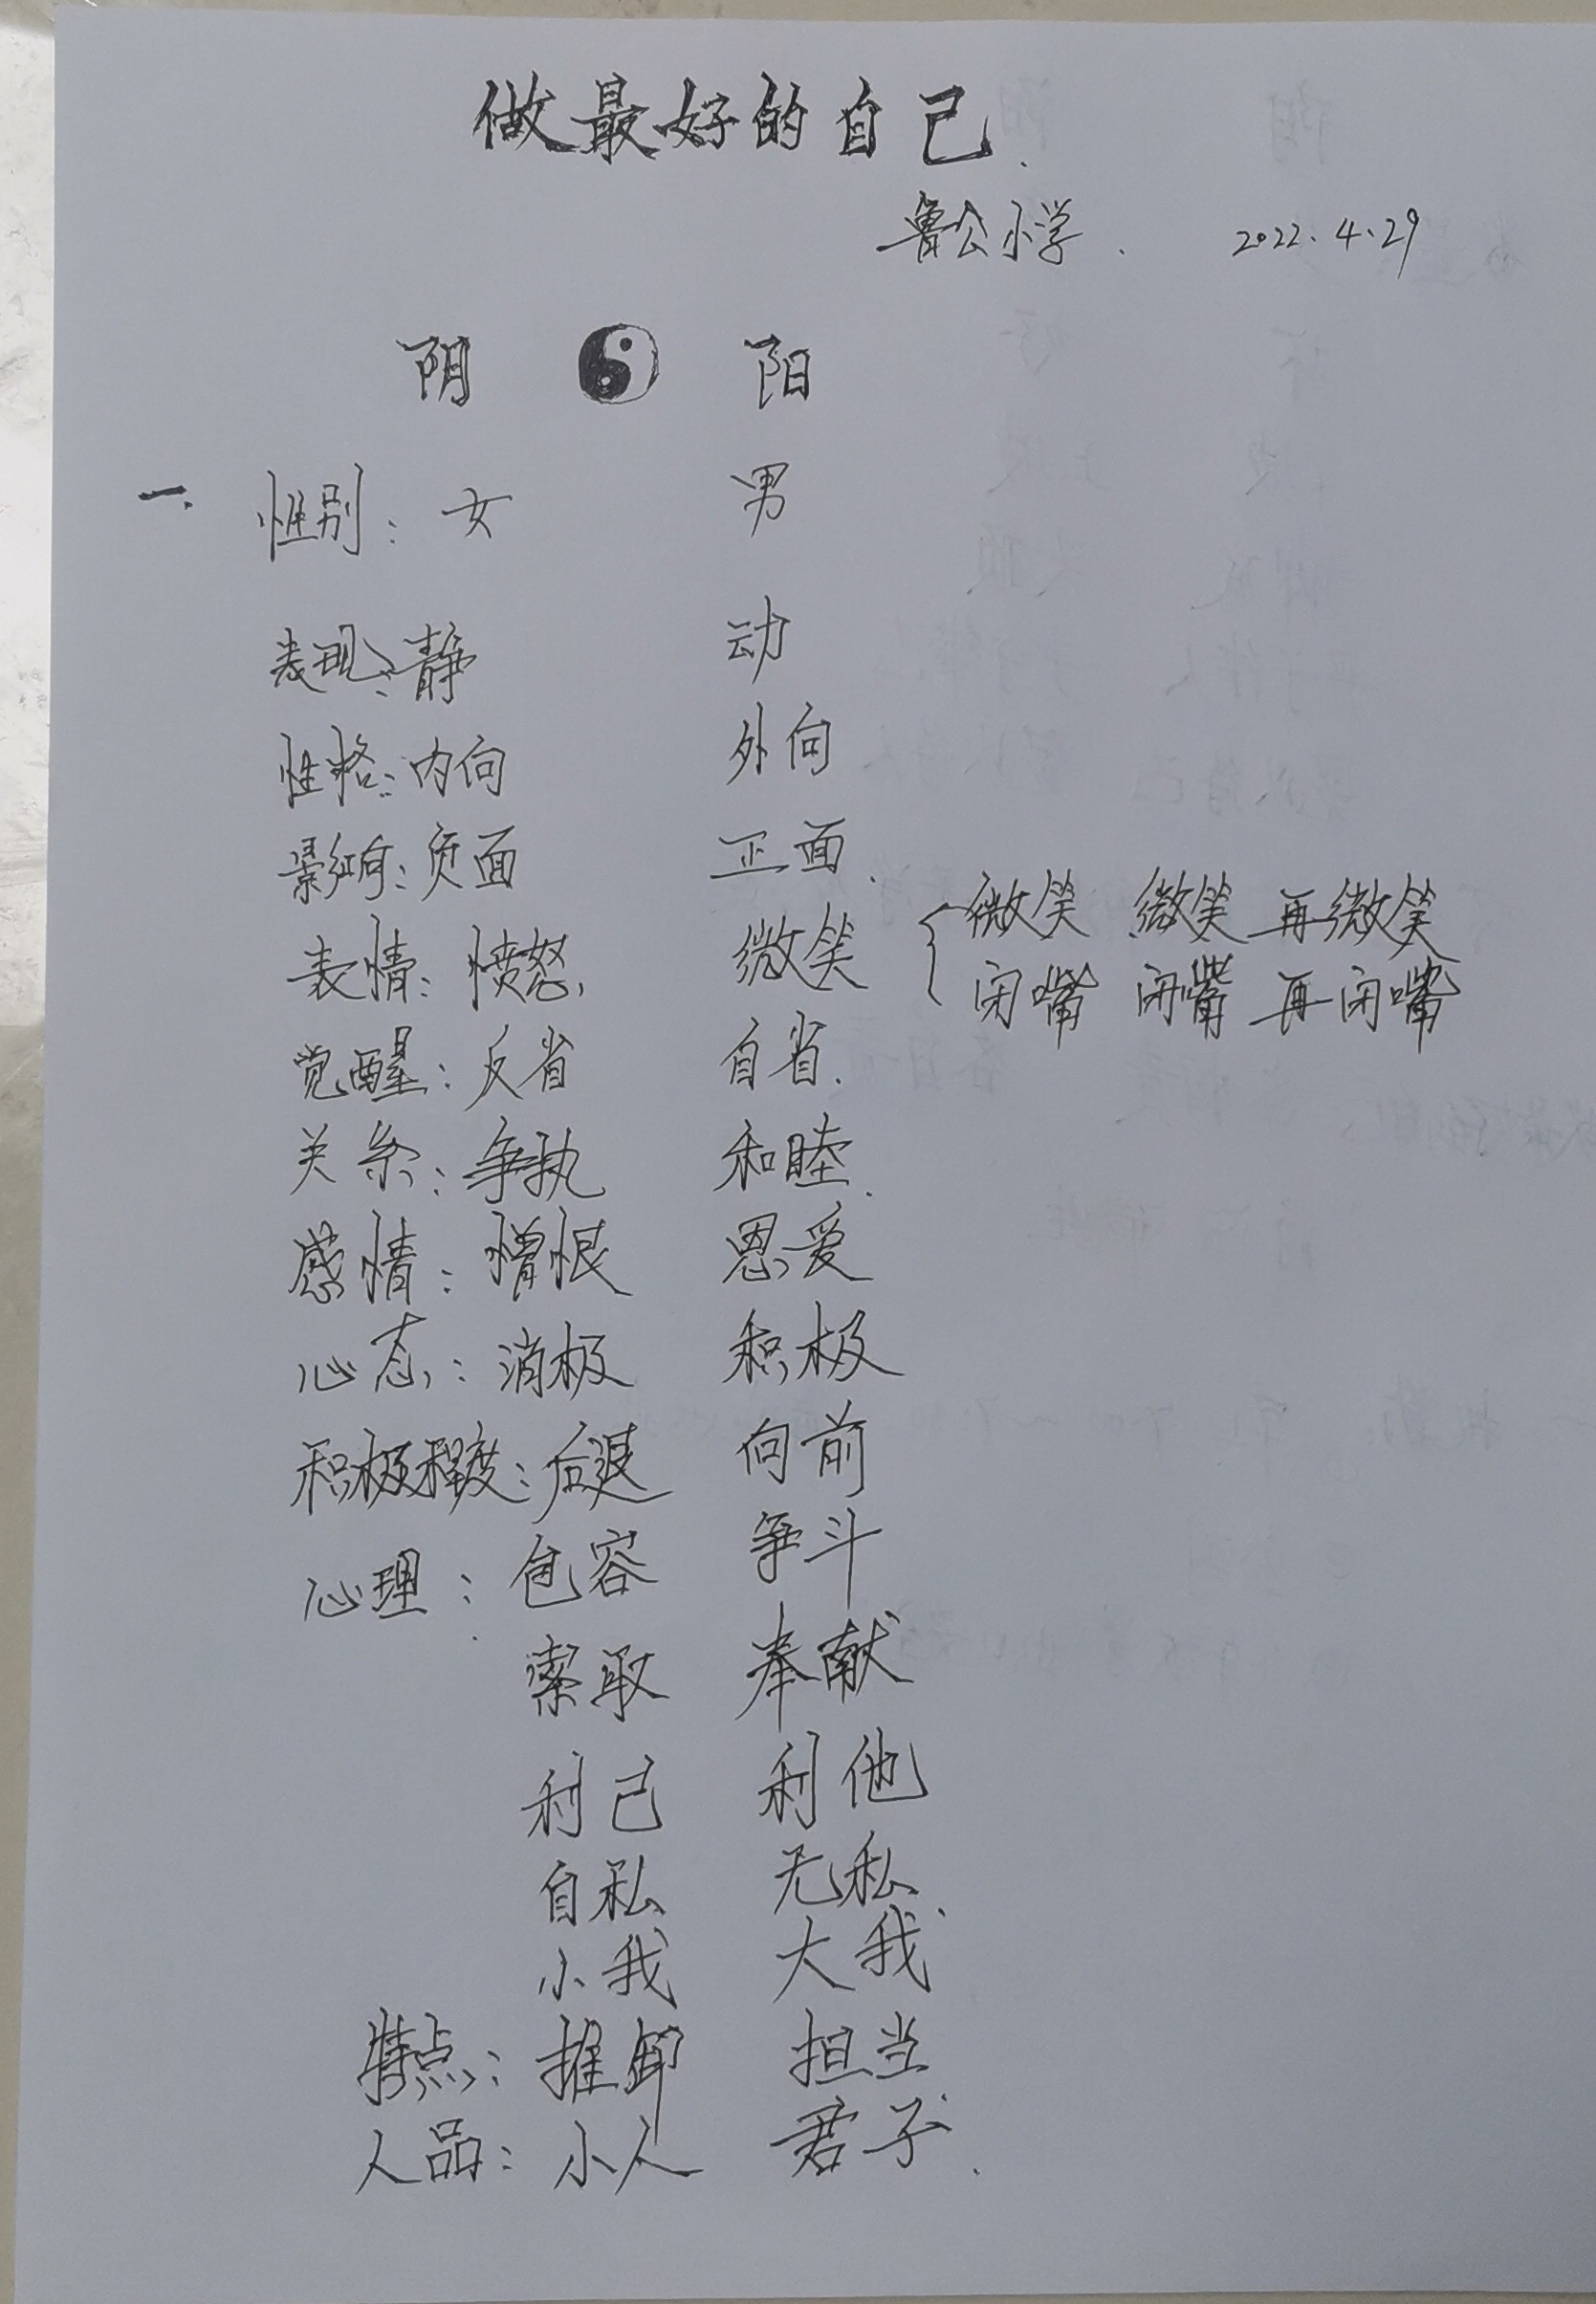 做最好的自己.
鲁公小学. 2022.4.29
阴 阳
一. 性别: 女 男
表现: 静 动
性格: 内向 外向
影响: 负面 正面.
表情: 愤怒 微笑 { 微笑 微笑 再微笑
闭嘴 闭嘴 再闭嘴
觉醒: 反省 自省.
关系: 争执 和睦.
感情: 憎恨 恩爱
心态: 消极 积极
积极程度: 后退 向前
心理: 包容 争斗
索取 奉献
利己 利他
自私 无私
小我 大我
特点: 推卸 担当
人品: 小人 君子.